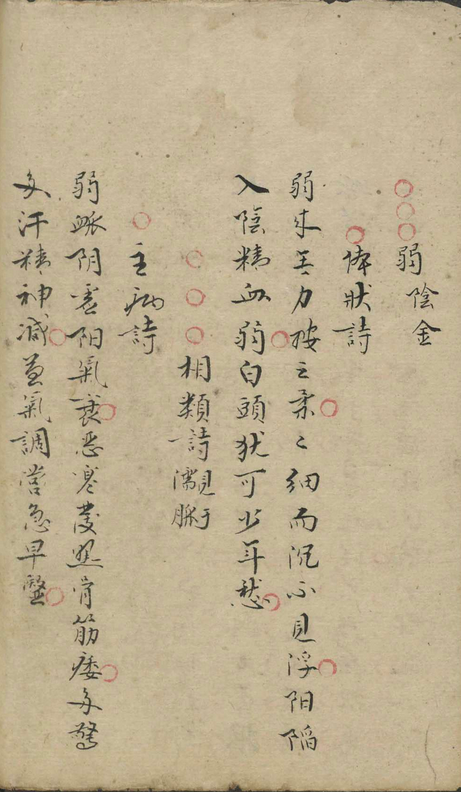 弱陰金
体狀詩
弱来無力按之柔〻細而沉不見浮阳陷
入陰精血弱白頭犹可少年愁
相類詩見于濡脈
主病詩
弱脈阴虚阳氣衰恶寒發热骨筋痿多驚
多汗精神减益氣調营急早醫